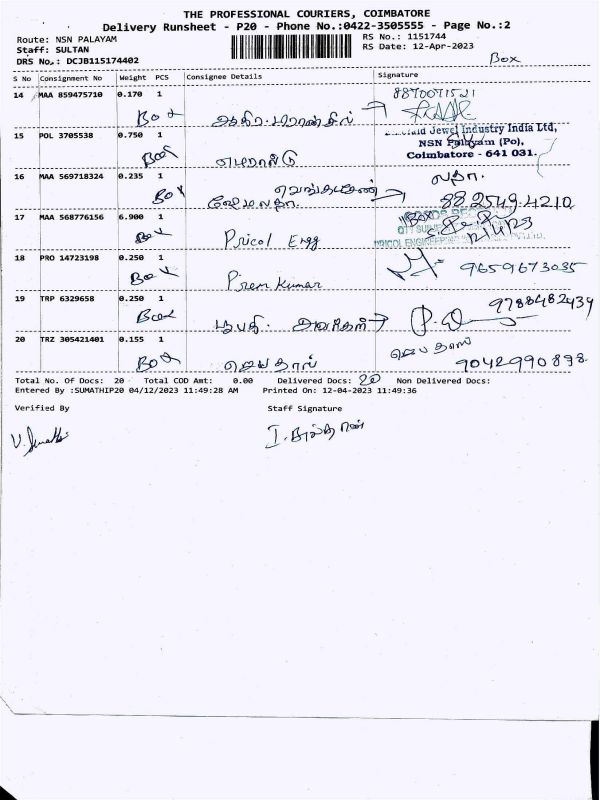 THE PROFESSIONAL COURIERS, COIMBATORE
Delivery Runsheet - P20 - Phone No.:0422-3505555 - Page No.:2
Route: NSN PALAYAM
RS No.: 1151744
Staff: SULTAN
RS Date: 12-Apr-2023
DRS No.: DCJB115174402
Box
S No Consignment No Weight PCS Consignee Details Signature
14 MAA 859475710 0.170 1
8870071521
Box
15 POL 3705538 0.750 1
Jewel Industry India Ltd,
NSN Palayam (Po),
Coimbatore - 641 031.
Box
16 MAA 569718324 0.235 1
லதா.
Box ஹேமலதா. 88 2549 4210
17 MAA 568776156 6.900 1
Box Pricol Engg
12/4/23
PRICOL ENGINEERING
18 PRO 14723198 0.250 1
9659673035
Box Prem Kumar
19 TRP 6329658 0.250 1
9788482439
Box
20 TRZ 305421401 0.155 1
ஜெயதாஸ்
Box ஜெயதாஸ் 9042990898
Total No. Of Docs: 20 Total COD Amt: 0.00 Delivered Docs: 20 Non Delivered Docs:
Entered By :SUMATHIP20 04/12/2023 11:49:28 AM Printed On: 12-04-2023 11:49:36
Verified By Staff Signature
V. Sumathi
I. சுல்தான்